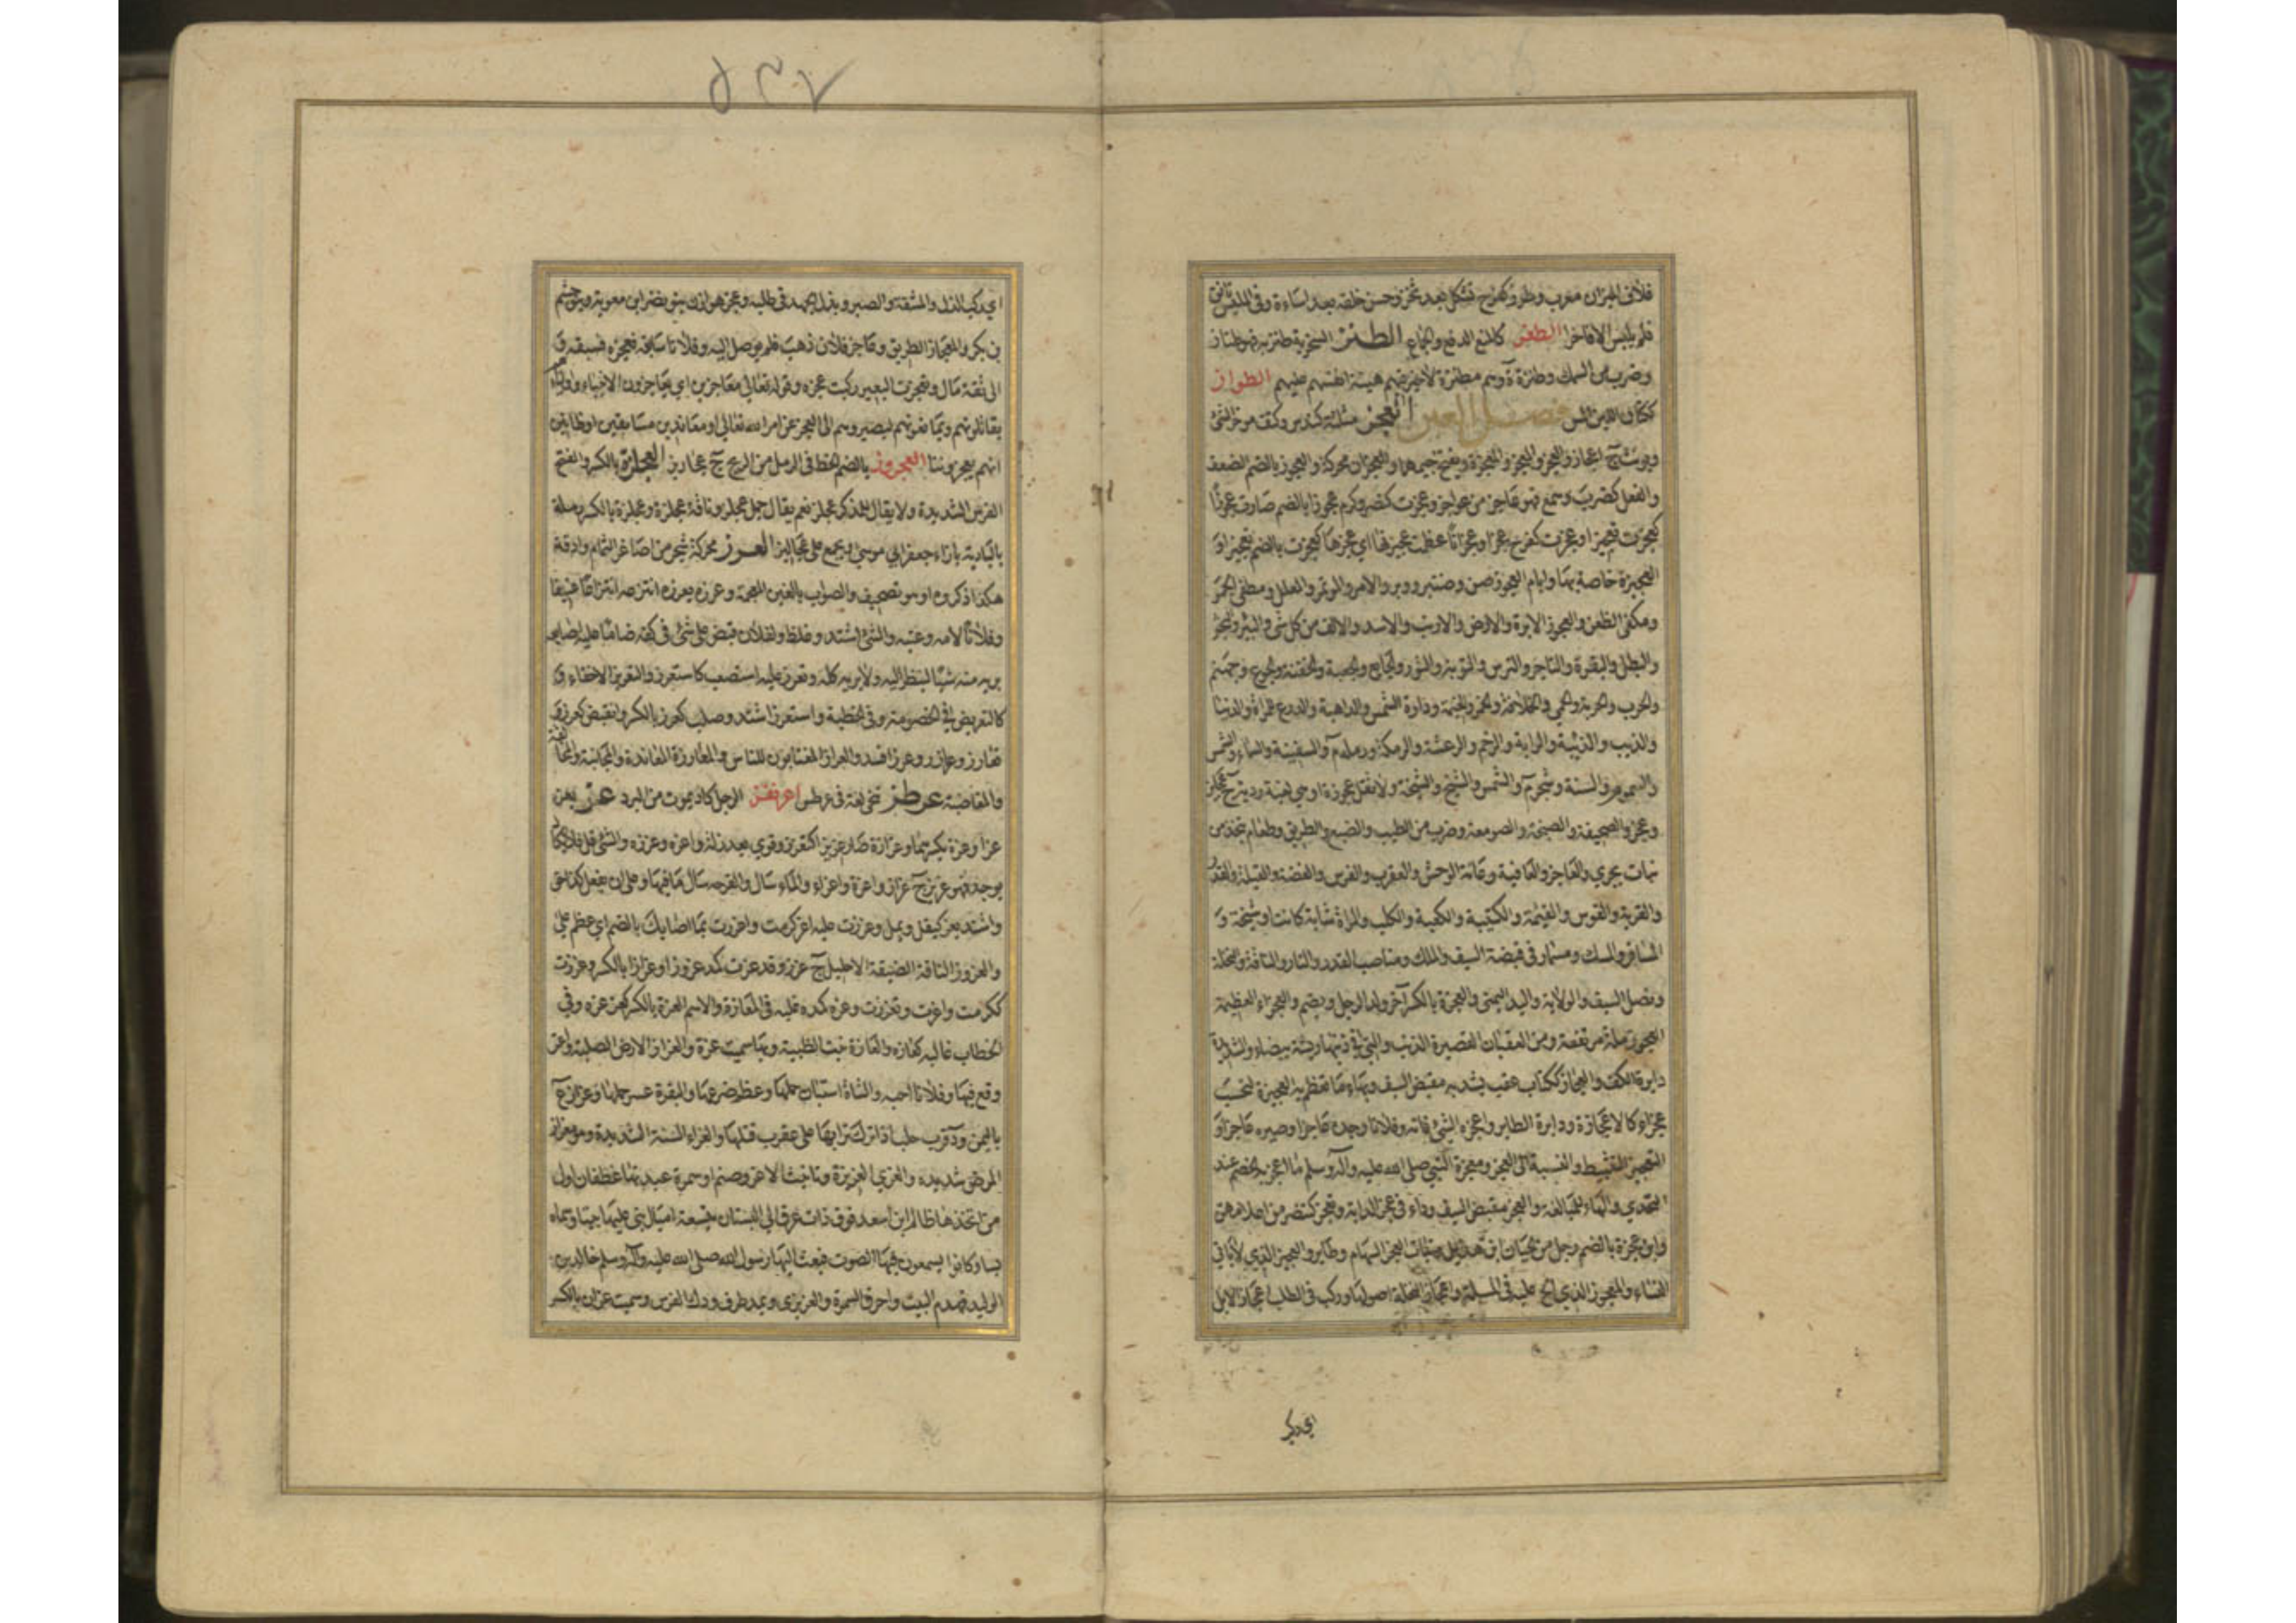 فلان في الميزان مغرب وطرز كفرح تشكل بعد ثخن وحسن خلقه بعد اساءة وفي الملبس تانق
فلم يلبس الا فاخرا الطعز كالمنع الدفع والجماع الطنز السخرية طنز به فهو طناز
وضرب من السمك وطنزة ة وهم مطنزة لا خير فيهم هينة انفسهم عليهم الطواز
ككتان اللين المس فصل العين العجز مثلثة كندس وكتف مؤخر الشئ
ويونث ج اعجاز والعجز والمعجز والمعجزة وتفتح جيمهما والعجزان محركة والعجوز بالضم الضعف
والفعل كضرب وسمع فهو عاجز من عواجز وعجزت كنصر وكرم عجوزا بالضم صارت عجوزا
كعجزت تعجيزا وعجزت كفرح عجزا وعجزا عظمت عجيزتها اي عجزها كعجزت بالضم تعجيزا و
العجيزة خاصة بها وايام العجوز صن وصنبر ووبر والامر والموتمر والمعلل ومطفئ الجمر
ومكفئ الظعن والعجوز الابرة والارض والارنب والاسد والالف من كل شئ والبئر والبحر
والبطل والبقرة والتاجر والترس والتوبة والثور والجايع والجعبة والجفنة والجوع وجهنم
والحرب والحربة والحمى والخلافة والخمر والخيمة ودارة الشمس والداهية والدرع للمراة والدنيا
والذيب والذئبة والراية والرخم والرعشة والرمكة ورملة م والسفينة والسماء والسمن
والسموم والسنة وشجر م والشمس والشيخ والشيخة ولا تقل عجوزة او هي لغية رديئة ج عجايز
وعجز والصحيفة والصنجة والصومعة وضرب من الطيب والضبع والطريق وطعام يتخذ من
نبات بحري والعاجز والعافية وعانة الوحش والعقرب والفرس والفضة والقبلة والقدر
والقرية والقوس والقيمة والكتيبة والكعبة والكلب والمراة شابة كانت او شيخة و
المسافر والمسك ومسمار في قبضة السيف والملك ومناصب القدر والنار والناقة والنخلة
ونصل السيف والولاية واليد اليمنى والعجزة بالكسر آخر ولد الرجل ويضم والعجزاء العظيمة
العجوز رملة مرتفعة ومن العقبان القصيرة الذنب والتي في ذنبها ريشة بيضاء والشديدة
دابرة الكف والعجاز ككتاب عقب يشد به مقبض السيف وبهاء ما تعظم به العجيزة لتحسب
عجزاء كالاعجازة ودابرة الطاير واعجزه الشئ فاته وفلانا وجده عاجزا وصيره عاجزا و
التعجيز التثبيط والنسبة الى العجز ومعجزة النبي صلى الله عليه وآله وسلم ما اعجز به الخصم عند
التحدي والهاء للمبالغة والعجز مقبض السيف وداء في عجز الدابة وتعجز كتنصر من اعلامهن
وابن عجزة بالضم رجل من لحيان ابن هذيل وبنات العجز السهام وطاير والعجيز الذي لا ياتي
النساء والمعجوز الذي الح عليه في المسئلة واعجاز النخلة اصولها وركب في الطلب اعجاز الابل
اي ركب
اي ركب الذل والمشقة والصبر وبذل الجهد في طلبه وعجز هوازن بنو نضر ابن معوية وبنو جشم
بن بكر والمعجاز الطريق وعاجز فلان ذهب فلم يوصل اليه وفلانا سابقه فعجزه فسبقه و
الى ثقة مال وتعجزت البعير ركبت عجزه وقوله تعالى معاجزين اي يعاجزون الانبياء واولياءهم
يقاتلونهم ويمانعونهم ليصيروهم الى العجز عن امر الله تعالى او معاندين مسابقين او ظانين
انهم يعجزوننا العجروز بالضم الخط في الرمل من الريح ج عجاريز العجلزة بالكسر والفتح
الفرس الشديدة ولا يقال للذكر عجلز نعم يقال جمل عجلز وناقة عجلزة وعجلزة بالكسر رملة
بالبادية بازاء حفر ابي موسى ويجمع على عجاليز العرز محركة شجر من اصاغر الثمام وادقه
هكذا ذكروه او هو تصحيف والصواب بالغين المعجمة وعرزه يعرزه انتزعه انتزاعا عنيفا
وفلانا لامه وعتبه والشئ اشتد وغلظ ولفلان قبض على شئ في كفه ضاما عليه اصابعه
يريه منه شيئا لينظر اليه ولا يريه كله وتعرز عليه استصعب كاستعرز والتعريز الاخفاء و
كالتعريض في الخصومة وفي الخطبة واستعرز اشتد وصلب كعرز بالكسر وانقبض كعرز و
تعارز وعارز وعرز افسد والعراز المغتابون للناس والمعارزة المعاندة والمجانبة والمخالفة
والمعاضبة عرطز تنحى لغة في عرطس اعرنفز الرجل كاد يموت من البرد عز يعز
عزا وعزة بكسرهما وعزازة صار عزيزا كتعزز وقوي بعد ذلة واعزه وعززه والشئ قل فلا يكاد
يوجد فهو عزيز ج عزاز واعزة واعزاء والماء سال والقرحة سال ما فيها وعلي ان يفعل كذا حق
واشتد يعز كيقل ويمل وعززت عليه اعز كرمت واعززت بما اصابك بالضم اي عظم علي
والعزوز الناقة الضيقة الاحليل ج عزز وقد عزت كمد عزوزا وعزازا بالكسر وعززت
ككرمت واعزت وتعززت وعزه كمده غلبه في المعازة والاسم العزة بالكسر كعزعزه وفي
الخطاب غالبه كعازه والعزة بنت الظبية وبها سميت عزة والعزاز الارض الصلبة واعز
وقع فيها وفلانا احبه والشاة استبان حملها وعظم ضرعها والبقرة عسر حملها وعزاز ع
باليمن ود قرب حلب اذا ترك ترابها على عقرب قتلها والعزاء السنة الشديدة وهو معزاز
المرض شديده والعزى العزيزة وتانيث الاعز وصنم او سمرة عبدتها غطفان اول
من اتخذها ظالم ابن اسعد فوق ذات عرق الى البستان بتسعة اميال بنى عليها بيتا وسماه
بسا وكانوا يسمعون فيها الصوت فبعث اليها رسول الله صلى الله عليه وآله وسلم خالد بن
الوليد فهدم البيت واحرق السمرة والعزيزى ويمد طرف ورك الفرس وسميت عزان بالكسر